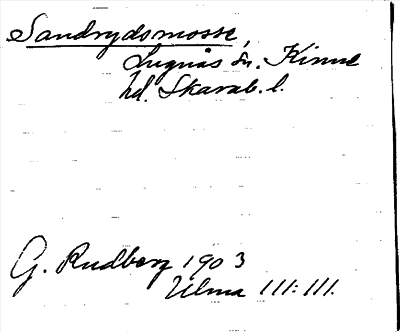 Sandrydsmosse,
Lugnås sn. Kinne
hd. Skarab. l.
G. Rudberg 1903
Ulma 111:111.